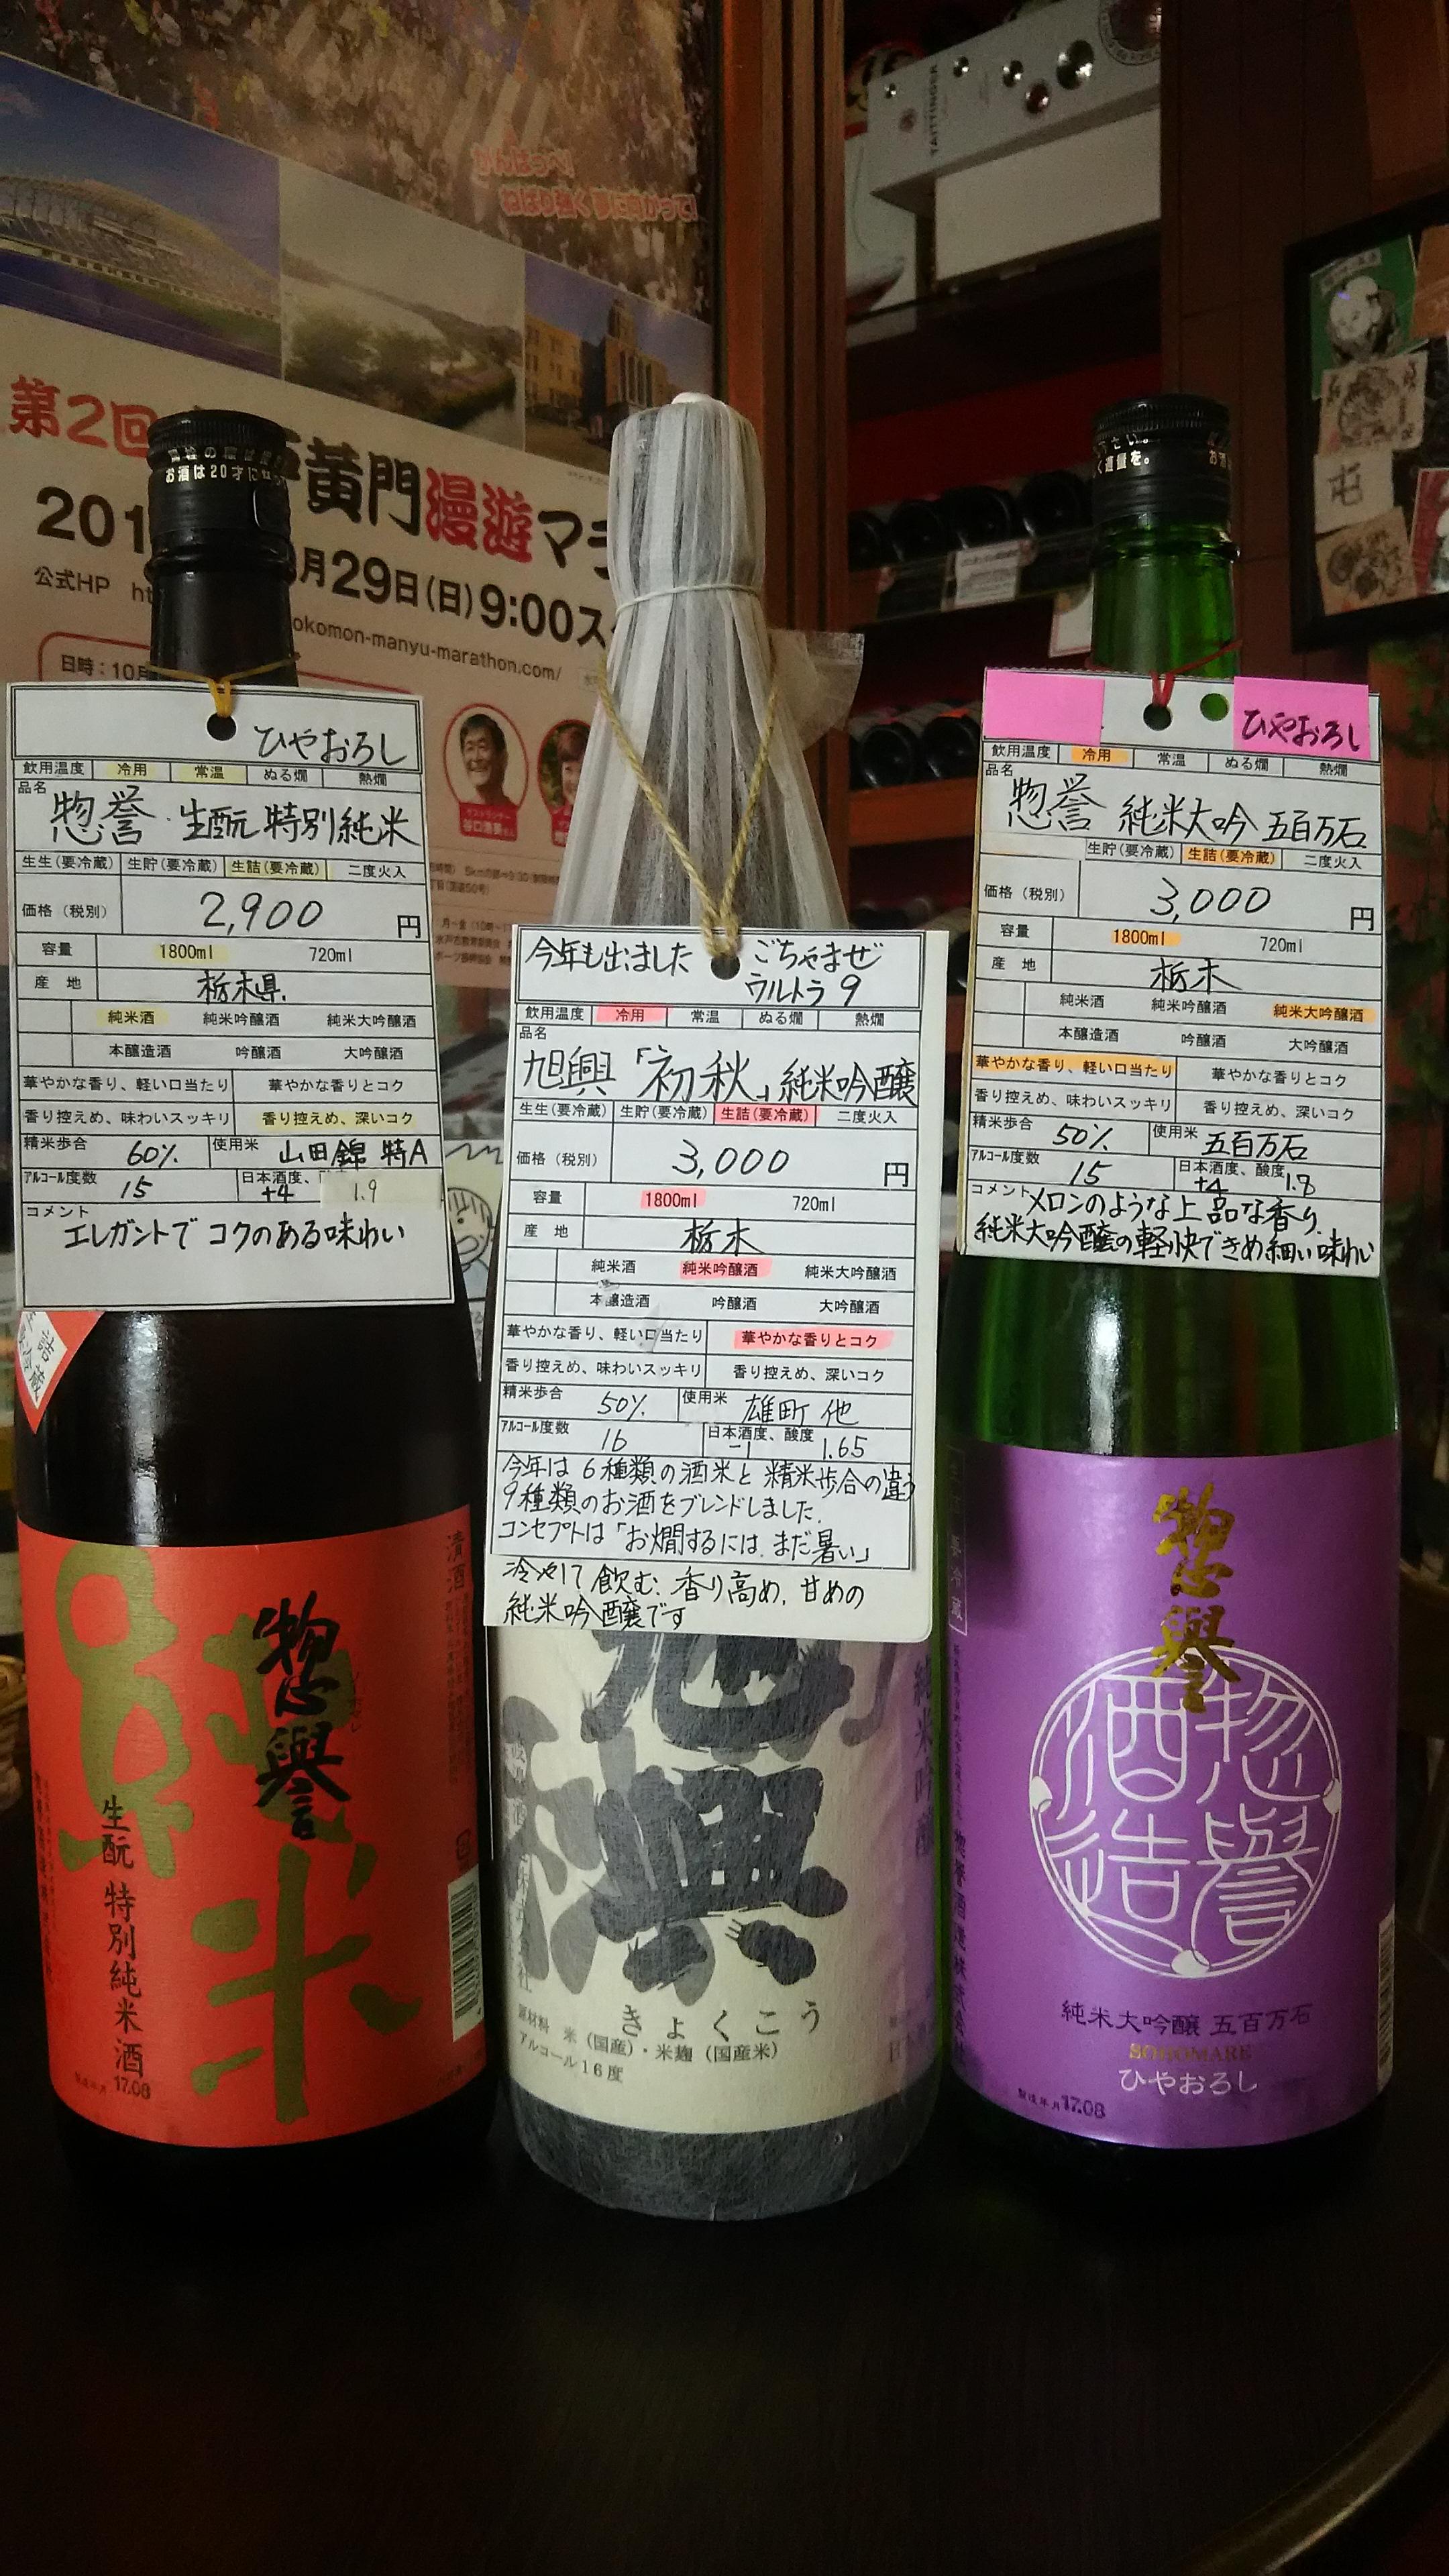 がんばっぺ!
ねばり強く夢に向かって!
TAITTINGER
第2回
黄門漫遊マラ
201
月29日(日)9:00ス
公式HP
okomon-manyu-marathon.com/
日時:10月
谷口浩美
お酒は20才に
ひやおろし
飲用温度 冷用 常温 ぬる燗 熱燗
品名
惣誉・生酛 特別純米
生生(要冷蔵) 生貯(要冷蔵) 生詰(要冷蔵) 二度火入
価格(税別) 2,900 円
容量 1800ml 720ml
産 地 栃木県
純米酒 純米吟醸酒 純米大吟醸酒
本醸造酒 吟醸酒 大吟醸酒
華やかな香り、軽い口当たり 華やかな香りとコク
香り控えめ、味わいスッキリ 香り控えめ、深いコク
精米歩合 60% 使用米 山田錦 特A
アルコール度数 15 日本酒度、 +4 1.9
コメント
エレガントで コクのある味わい
惣譽
純米
生酛 特別純米酒
清酒
製造年月 17.08
今年も出ました ごちゃまぜ
ウルトラ9
飲用温度 冷用 常温 ぬる燗 熱燗
品名
旭興「初秋」純米吟醸
生生(要冷蔵) 生貯(要冷蔵) 生詰(要冷蔵) 二度火入
価格(税別) 3,000 円
容量 1800ml 720ml
産 地 栃木
純米酒 純米吟醸酒 純米大吟醸酒
本醸造酒 吟醸酒 大吟醸酒
華やかな香り、軽い口当たり 華やかな香りとコク
香り控えめ、味わいスッキリ 香り控えめ、深いコク
精米歩合 50% 使用米 雄町 他
アルコール度数 16 日本酒度、酸度 -1 1.65
今年は 6種類の酒米と 精米歩合の違う
9種類のお酒をブレンドしました.
コンセプトは「お燗するには、まだ暑い」
冷やして飲む、香り高め、甘めの
純米吟醸です
旭興
純米吟醸
きょくこう
原材料 米(国産)・米麹(国産米)
アルコール16度
ひやおろし
飲用温度 冷用 常温 ぬる燗 熱燗
品名
惣誉 純米大吟 五百万石
生貯(要冷蔵) 生詰(要冷蔵) 二度火入
価格(税別) 3,000 円
容量 1800ml 720ml
産 地 栃木
純米酒 純米吟醸酒 純米大吟醸酒
本醸造酒 吟醸酒 大吟醸酒
華やかな香り、軽い口当たり 華やかな香りとコク
香り控えめ、味わいスッキリ 香り控えめ、深いコク
精米歩合 50% 使用米 五百万石
アルコール度数 15 日本酒度、酸度 +4 1.8
コメント メロンのような上品な香り.
純米大吟醸の軽快できめ細い味わい
惣譽
惣譽酒造
純米大吟醸 五百万石
SOHOMARE
ひやおろし
製造年月 17.08
惣譽酒造株式会社
要冷蔵